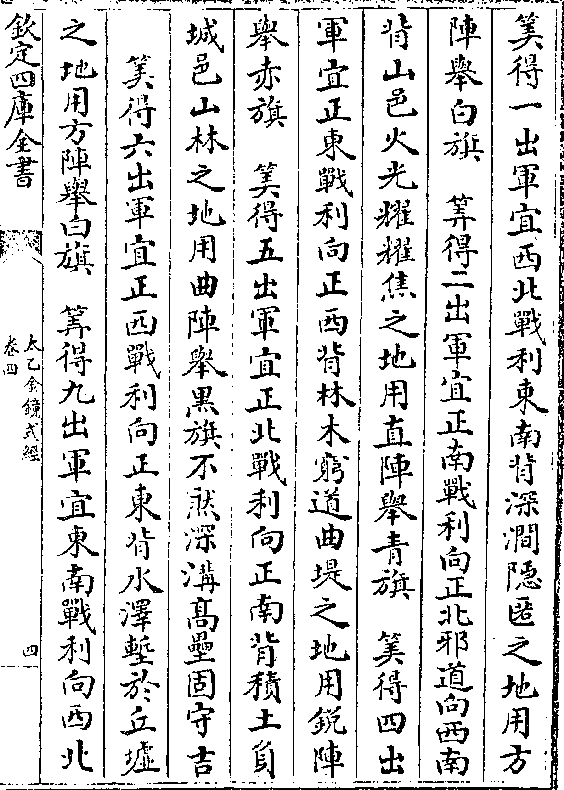 筭得一出軍宜西北戰利東南背深澗隱匿之地用方
陣舉白旗　筭得二出軍宜正南戰利向正北邪道向西南
背山邑火光燿燿焦之地用直陣舉青旗　筭得四出
軍宜正東戰利向正西背林木窮道曲堤之地用銳陣
舉赤旗　筭得五出軍宜正北戰利向正南背積土負
城邑山林之地用曲陣舉黑旗不然深溝髙壘固守吉
筭得六出軍宜正西戰利向正東背水澤塹於丘墟
之地用方陣舉白旗　筭得九出軍宜東南戰利向西北
欽定四庫全書
太乙金鏡式經
卷四
四